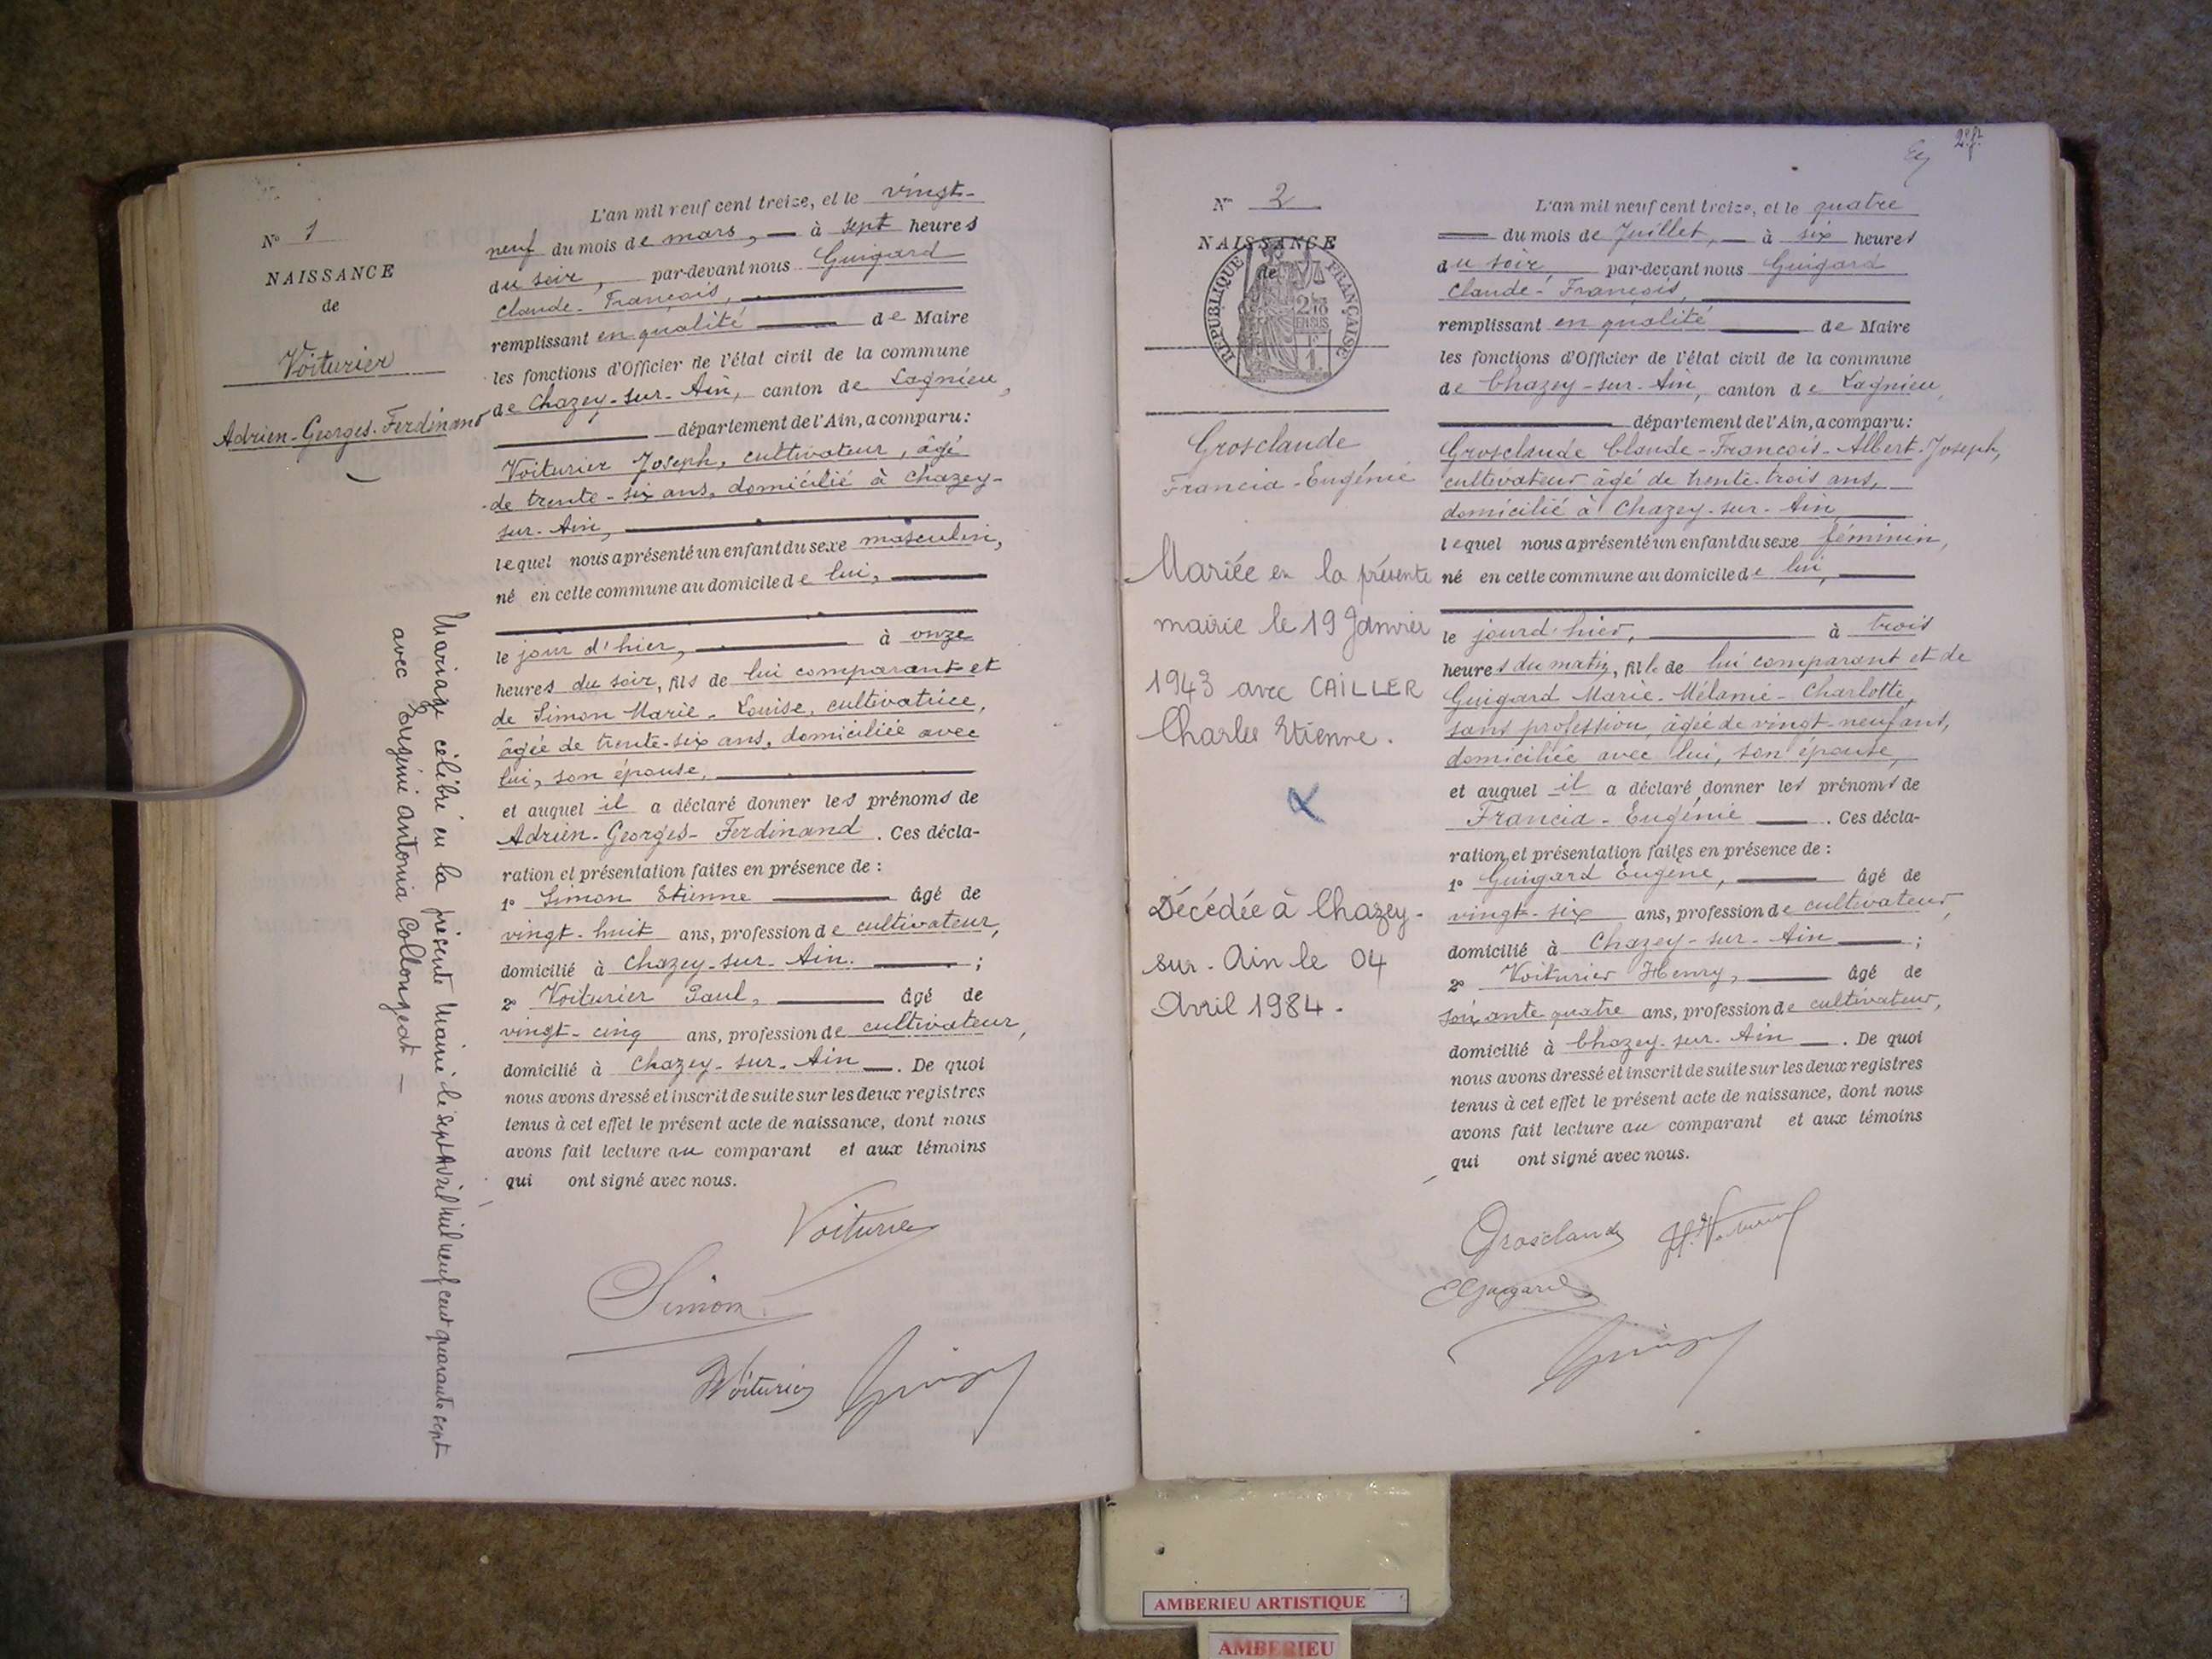 N° 1
NAISSANCE
de
Voiturier
Adrien-Georges-Ferdinand
Mariage célébré en la présente Mairie le Sept Avril Mil neuf cent quarante sept
avec Eugénie Antonia Collongeat —
L'an mil neuf cent treize, et le vingt-
neuf du mois de mars, — à sept heures
du soir, par-devant nous Guigard
Claude-François,
remplissant en qualité de Maire
les fonctions d'Officier de l'état civil de la commune
de Chazey-sur-Ain, canton de Lagnieu,
département de l'Ain, a comparu:
Voiturier Joseph, cultivateur, âgé
de trente-six ans, domicilié à Chazey-
sur-Ain,
lequel nous a présenté un enfant du sexe masculin,
né en cette commune au domicile de lui,
le jour d'hier, à onze
heures du soir, fils de lui comparant et
de Simon Marie-Louise, cultivatrice,
âgée de trente-six ans, domiciliée avec
lui, son épouse,
et auquel il a déclaré donner les prénoms de
Adrien-Georges-Ferdinand. Ces décla-
ration et présentation faites en présence de :
1° Simon Etienne âgé de
vingt-huit ans, profession de cultivateur,
domicilié à Chazey-sur-Ain. ;
2° Voiturier Paul, âgé de
vingt-cinq ans, profession de cultivateur,
domicilié à Chazey-sur-Ain. De quoi
nous avons dressé et inscrit de suite sur les deux registres
tenus à cet effet le présent acte de naissance, dont nous
avons fait lecture au comparant et aux témoins
qui ont signé avec nous.
Voiturier
Simon
Voiturier
2e f.
N° 2
NAISSANCE
de
RÉPUBLIQUE FRANÇAISE
2/10
EN SUS
1 F
Grosclaude
Francia-Eugénie
Mariée en la présente
mairie le 19 Janvier
1943 avec CAILLER
Charles Etienne.
Décédée à Chazey-
sur-Ain le 04
Avril 1984.
L'an mil neuf cent treize, et le quatre
du mois de Juillet, — à six heures
du soir, par-devant nous Guigard
Claude-François,
remplissant en qualité de Maire
les fonctions d'Officier de l'état civil de la commune
de Chazey-sur-Ain, canton de Lagnieu,
département de l'Ain, a comparu:
Grosclaude Claude-François-Albert-Joseph,
cultivateur âgé de trente-trois ans,
domicilié à Chazey-sur-Ain
lequel nous a présenté un enfant du sexe féminin,
né en cette commune au domicile de lui,
le jour d'hier, à trois
heures du matin, fille de lui comparant et de
Guigard Marie-Mélanie-Charlotte,
sans profession, âgée de vingt-neuf ans,
domiciliée avec lui, son épouse,
et auquel il a déclaré donner les prénoms de
Francia-Eugénie. Ces décla-
ration et présentation faites en présence de :
1° Guigard Eugène, âgé de
vingt-six ans, profession de cultivateur,
domicilié à Chazey-sur-Ain ;
2° Voiturier Henry, âgé de
soixante-quatre ans, profession de cultivateur,
domicilié à Chazey-sur-Ain. De quoi
nous avons dressé et inscrit de suite sur les deux registres
tenus à cet effet le présent acte de naissance, dont nous
avons fait lecture au comparant et aux témoins
qui ont signé avec nous.
Grosclaude
E Guigard
AMBERIEU ARTISTIQUE
AMBERIEU